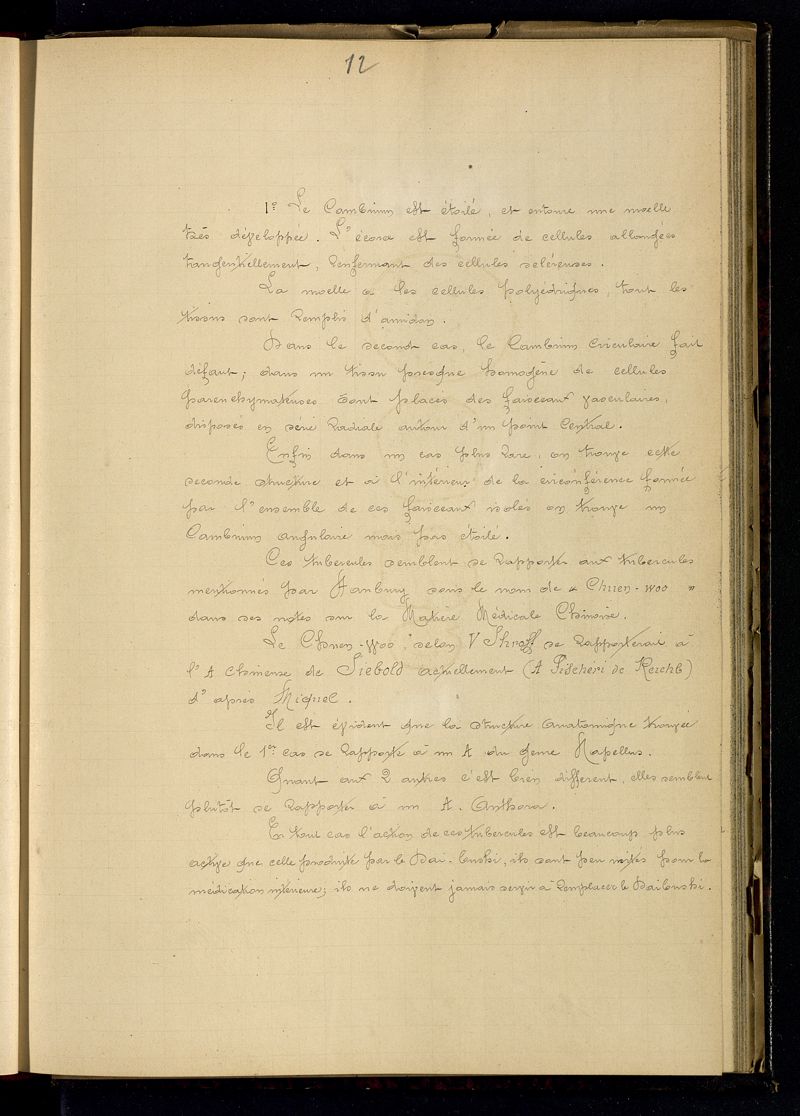 12
1° Le Cambium est étoilé, et entoure une moelle
très développée. L'écorce est formée de cellules allongées
tangentiellement, renfermant des cellules scléreuses.
La moelle a les cellules polyédriques, tout les
tissus sont remplis d'amidon.
Dans le second cas, le Cambium circulaire fait
défaut; dans un tissu presque homogène de cellules
parenchymateuses sont placés des faisceaux vasculaires,
disposés en série radiale autour d'un point Central.
Enfin dans un cas plus rare, on trouve cette
seconde structure et à l'intérieur de la circonférence formée
par l'ensemble de ces faisceaux isolés on trouve un
Cambium angulaire mais pas étoilé.
Ces tubercules semblent se rapporter aux tubercules
mentionnés par Hanbury sous le nom de « Chuen-woo »
dans ses notes sur la Matière Médicale Chinoise.
Le Chuen-woo, selon V Shroff se rapporterait à
l'A Chinense de Siebold actuellement (A Fischeri de Reichb)
d'après Miquel.
Il est évident que la structure anatomique trouvée
dans le 1er cas se rapporte à un A du genre Napellus.
Quant aux 2 autres c'est bien différent, elles semblent
plutôt se rapporter à un A. Anthora.
En tout cas l'action de ces tubercules est beaucoup plus
active que celle produite par le Dai-bushi, ils sont peu usités pour la
médication intérieure; ils ne doivent jamais servir à remplacer le Daibushi.